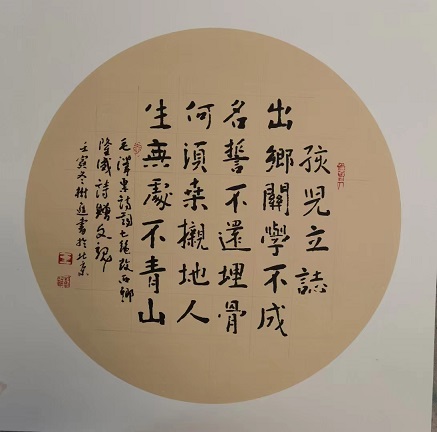 孩兒立誌
出鄉關學不成
名誓不還埋骨
何須桑櫬地人
生無處不青山
毛澤東詩詞七絕改西鄉
隆盛詩贈父親
壬寅冬樹書於北京